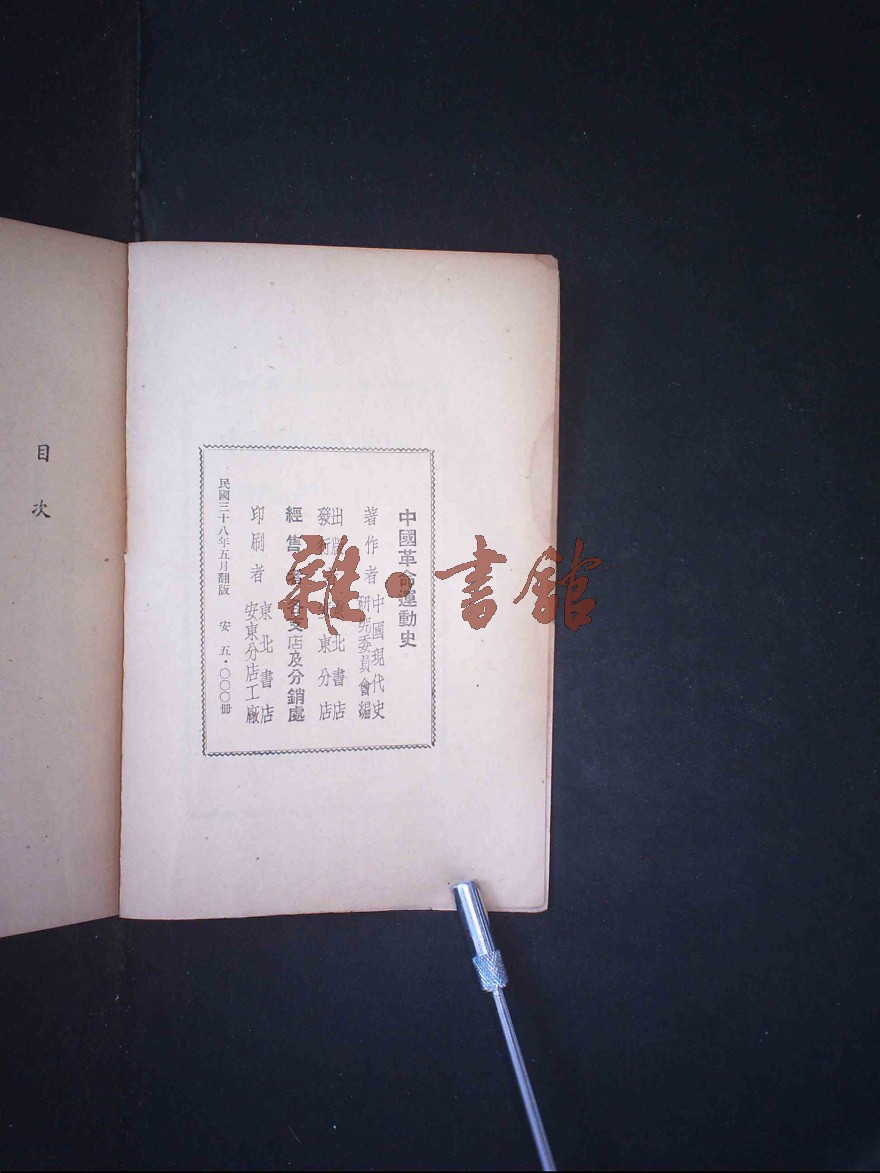 中國革命運動史
著作者 中國現代史
研究委員會編
出版 東北書店
發行 東分店
經售者 各支店及分銷處
印刷者 東北書店
安東分店工廠
民國三十八年五月翻版 安 五・〇〇〇冊
目次
雜・書館